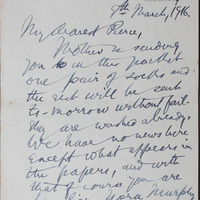 9th March, 1916.
My dearest Pierce,
Mother is sending
you in this packet
one pair of socks and
the rest will be sent
to-morrow without fail.
They are washed already.
We have no news here
except what appears in
the papers, and with
that of course you are
Nora Murphy